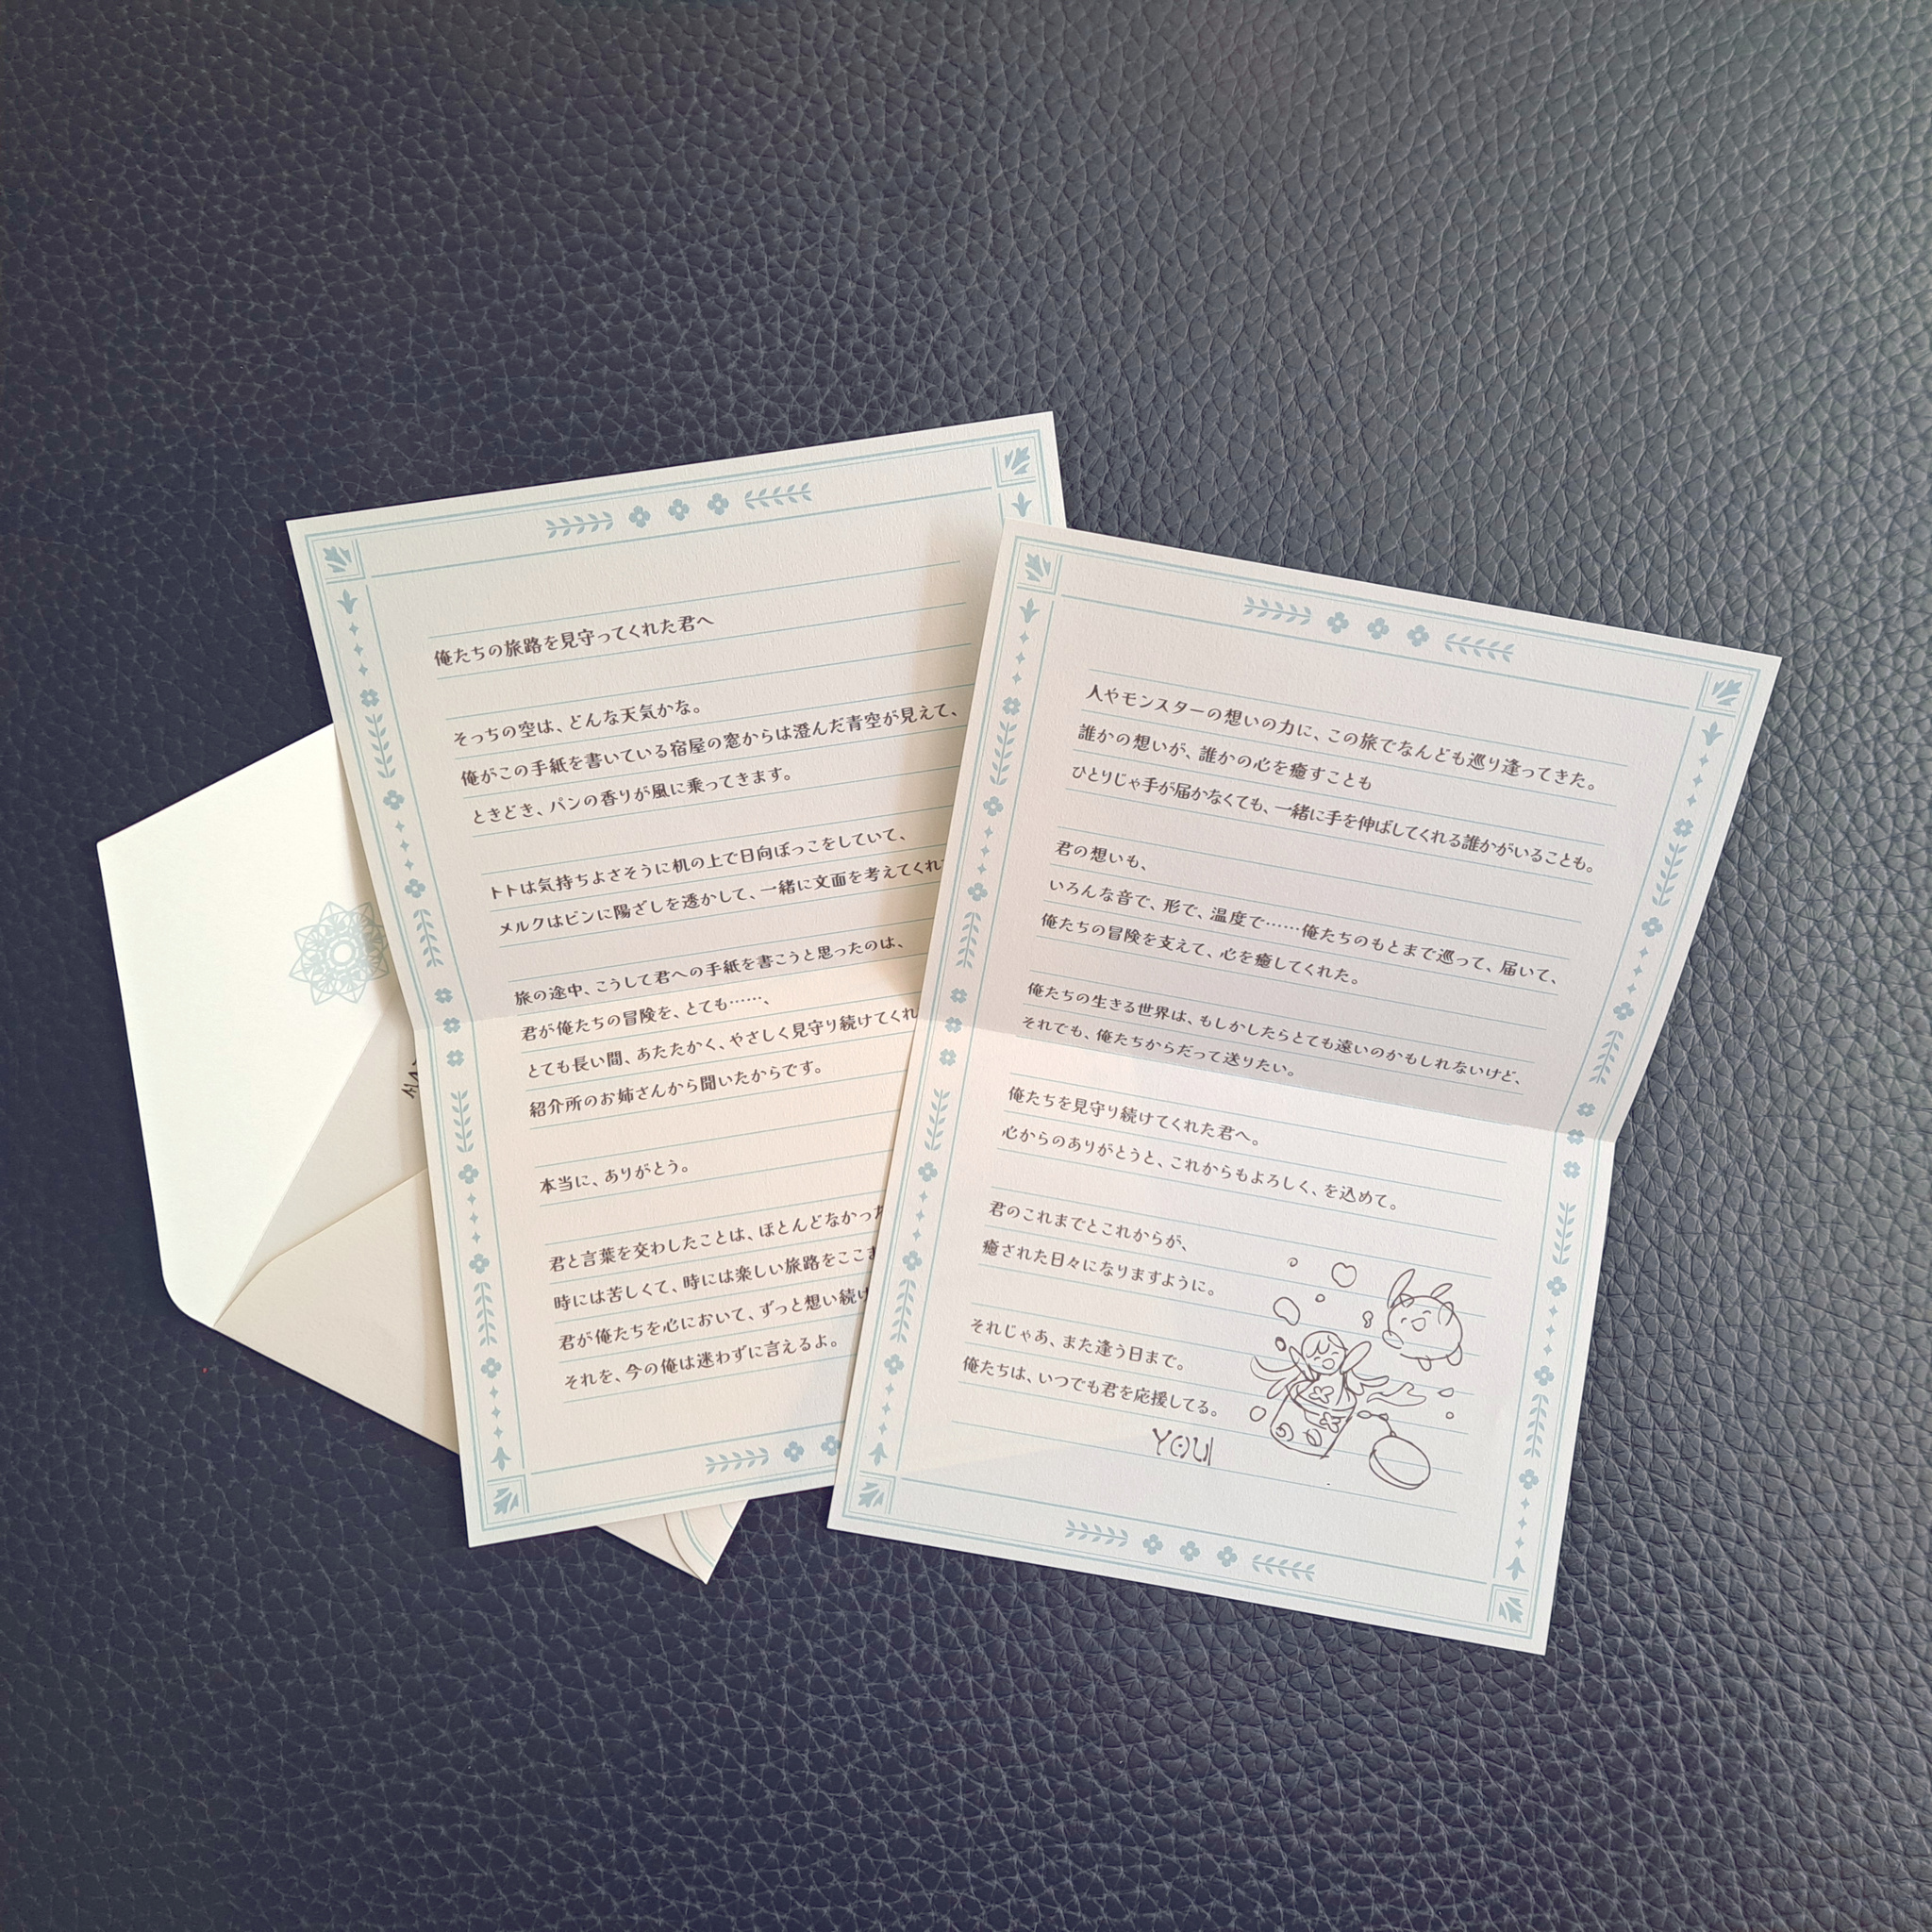 俺たちの旅路を見守ってくれた君へ
そっちの空は、どんな天気かな。
俺がこの手紙を書いている宿屋の窓からは澄んだ青空が見えて、
ときどき、パンの香りが風に乗ってきます。
トトは気持ちよさそうに机の上で日向ぼっこをしていて、
メルクはビンに陽ざしを透かして、一緒に文面を考えてくれ
旅の途中、こうして君への手紙を書こうと思ったのは、
君が俺たちの冒険を、とても……、
とても長い間、あたたかく、やさしく見守り続けてくれ
紹介所のお姉さんから聞いたからです。
本当に、ありがとう。
君と言葉を交わしたことは、ほとんどなかった
時には苦しくて、時には楽しい旅路をここま
君が俺たちを心において、ずっと想い続け
それを、今の俺は迷わずに言えるよ。
人やモンスターの想いの力に、この旅でなんども巡り逢ってきた。
誰かの想いが、誰かの心を癒すことも
ひとりじゃ手が届かなくても、一緒に手を伸ばしてくれる誰かがいることも。
君の想いも、
いろんな音で、形で、温度で……俺たちのもとまで巡って、届いて、
俺たちの冒険を支えて、心を癒してくれた。
俺たちの生きる世界は、もしかしたらとても遠いのかもしれないけど、
それでも、俺たちからだって送りたい。
俺たちを見守り続けてくれた君へ。
心からのありがとうと、これからもよろしく、を込めて。
君のこれまでとこれからが、
癒された日々になりますように。
それじゃあ、また逢う日まで。
俺たちは、いつでも君を応援してる。